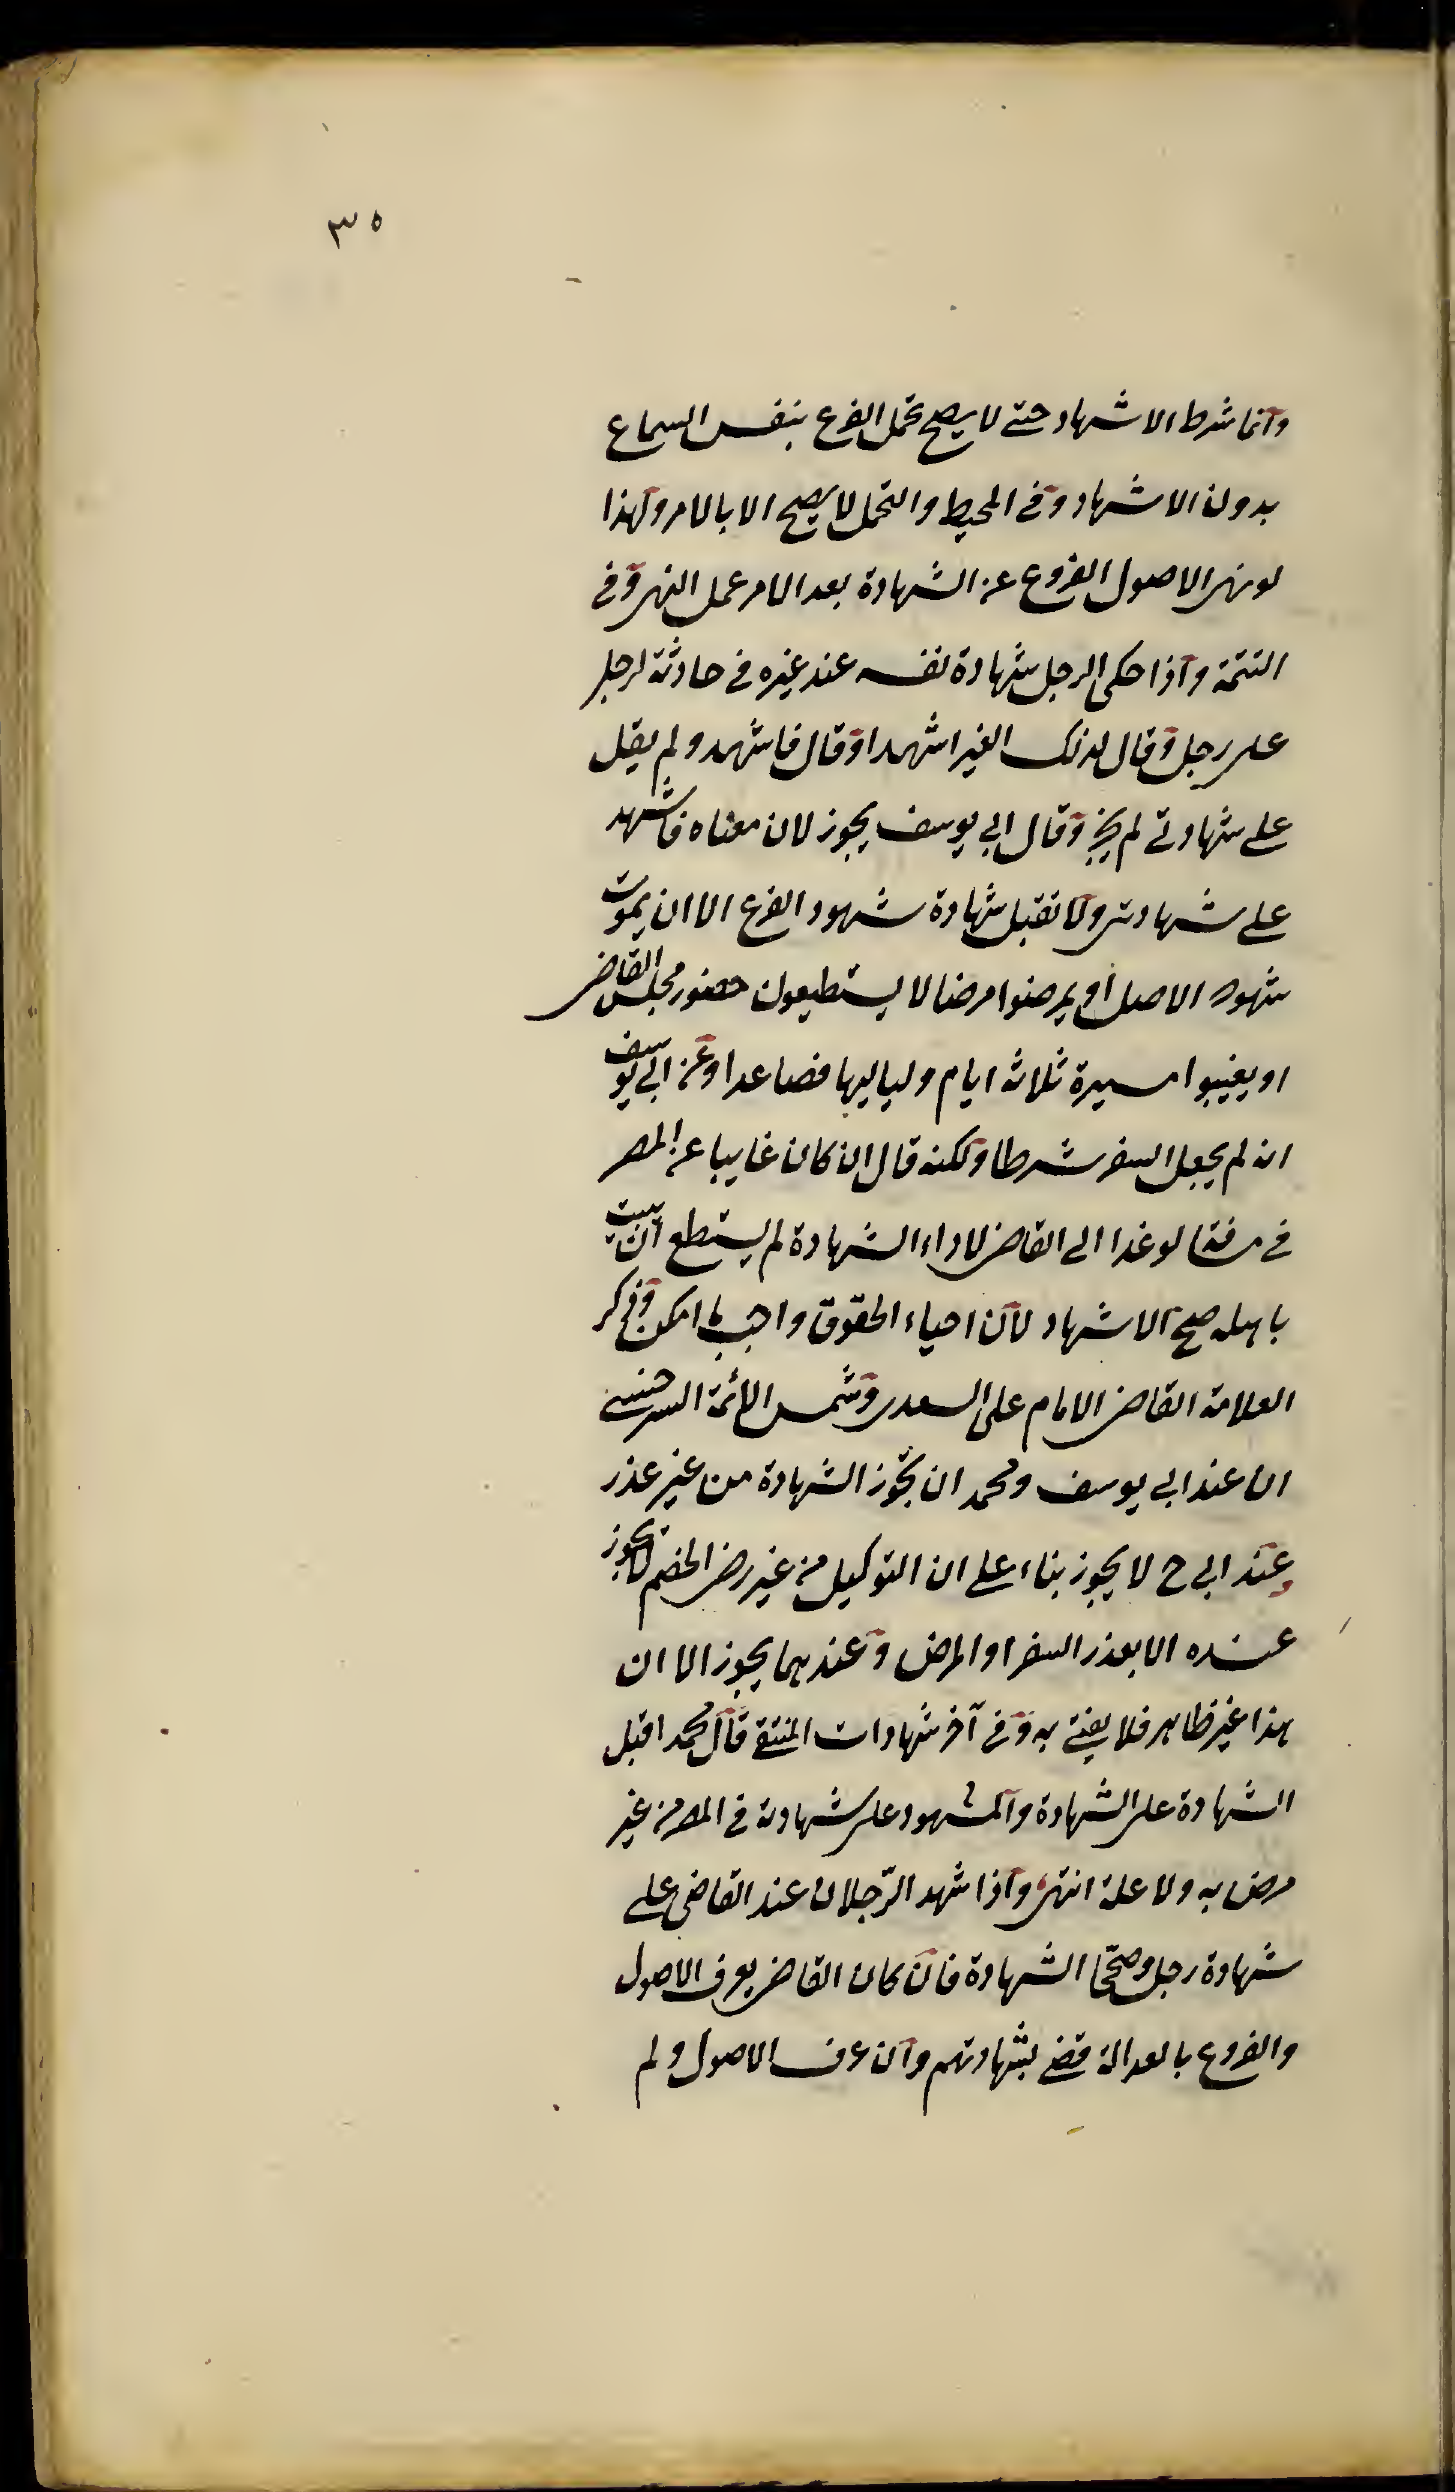 ٣٥
وانما شرط الاشهاد حتى لا يصح تحمل الفرع بنفس السماع
بدون الاشهاد وفي المحيط والتحمل لا يصح الا بالامر ولهذا
لو نهى الاصول الفروع عن الشهادة بعد الامر عمل النهى وفي
التتمة واذا حكى الرجل شهادة نفسه عند غيره في حادثة لرجل
على رجل وقال لذلك الغير اشهد او قال فاشهد ولم يقل
على شهادتي لم يجز وقال ابي يوسف يجوز لان معناه فاشهد
على شهادتى ولا تقبل شهادة شهود الفرع الا ان يموت
شهود الاصل او يمرضوا مرضا لا يستطيعون حضور مجلس القاضى
او يغيبوا مسيرة ثلاثة ايام ولياليها فصاعدا وعن ابي يوسف
انه لم يجعل السفر شرطا ولكنه قال ان كان غايبا عن المصر
في مسافة لو غدا الى القاضى لاداء الشهادة لم يستطع ان يبيت
باهله صح الاشهاد لان احياء الحقوق واجب ما امكن وذكر
العلامة القاضى الامام على السعدى وشمس الائمة السرخسي
ان عند ابي يوسف ومحمد ان تجوز الشهادة من غير عذر
وعند ابي ح لا يجوز بناء على ان التوكيل من غير رضى الخصم لا يجوز
عنده الا بعذر السفر او المرض وعندهما يجوز الا ان
هذا غير ظاهر فلا يفتي به وفي آخر شهادات المنتقى قال محمد اقبل
الشهادة على الشهادة والمشهود على شهادته في المصر من غير
مرض به ولا علة انتهى واذا شهد الرّجلان عند القاضى على
شهادة رجل وصححا الشهادة فان كان القاضى يعرف الاصول
والفروع بالعدالة قضى بشهادتهم وان عرف الاصول ولم